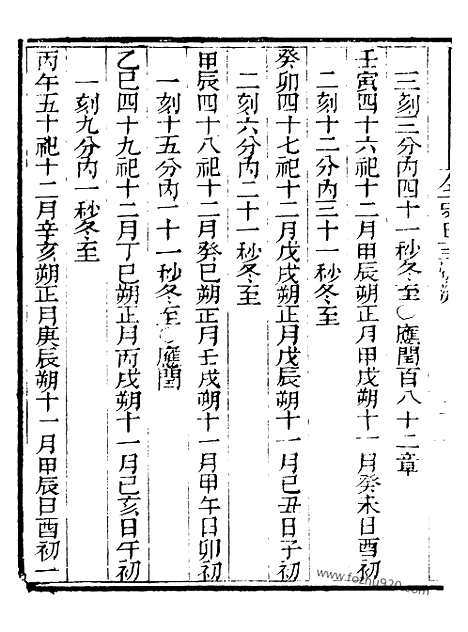 三刻三分內四十一秒冬至○應閏百八十二章
壬寅四十六祀十二月甲辰朔正月甲戌朔十一月癸未日酉初
二刻十二分內三十一秒冬至
癸卯四十七祀十二月戊戌朔正月戊辰朔十一月己丑日子初
二刻六分內二十一秒冬至
甲辰四十八祀十二月癸巳朔正月壬戌朔十一月甲午日卯初
一刻十五分內一十一秒冬至○應閏
乙巳四十九祀十二月丁巳朔正月丙戌朔十一月己亥日午初
一刻九分內一秒冬至
丙午五十祀十二月辛亥朔正月庚辰朔十一月甲辰日酉初一
www.fozhu920.com